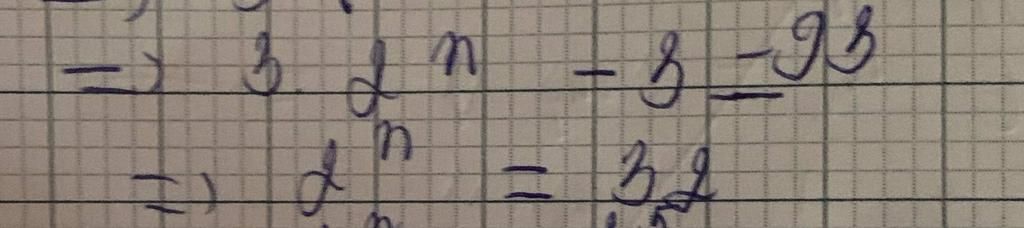 => 3. 2^n - 3 = 93
=> 2^n = 32